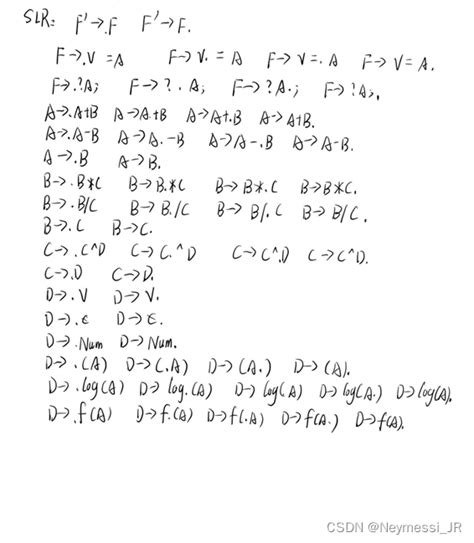 SLR: F'→.F F'→F.
F→.V=A F→V.=A F→V=.A F→V=A.
F→.?A; F→?.A; F→?A.; F→?A;.
A→.A+B A→A.+B A→A+.B A→A+B.
A→.A-B A→A.-B A→A-.B A→A-B.
A→.B A→B.
B→.B*C B→B.*C B→B*.C B→B*C.
B→.B/C B→B./C B→B/.C B→B/C.
B→.C B→C.
C→.C^D C→C.^D C→C^.D C→C^D.
C→.D C→D.
D→.V D→V.
D→.ϵ D→ϵ.
D→.Num D→Num.
D→.(A) D→(.A) D→(A.) D→(A).
D→.log(A) D→log.(A) D→log(A) D→log(A.) D→log(A).
D→.f(A) D→f.(A) D→f(.A) D→f(A.) D→f(A).
CSDN @Neymessi_JR